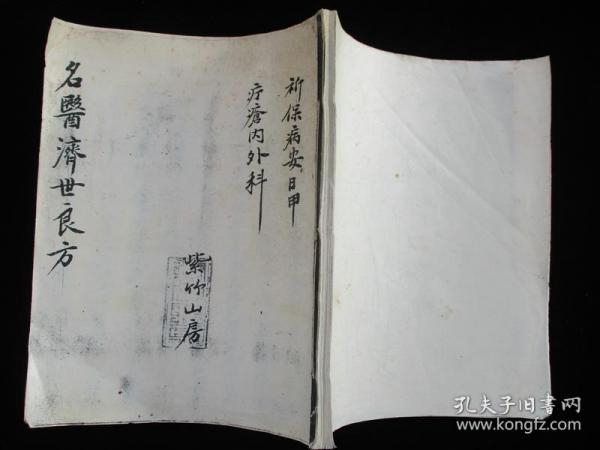 祈保病安日甲
疔瘡内外科
紫竹山房
名醫濟世良方
孔夫子旧書网
www.kongfz.com